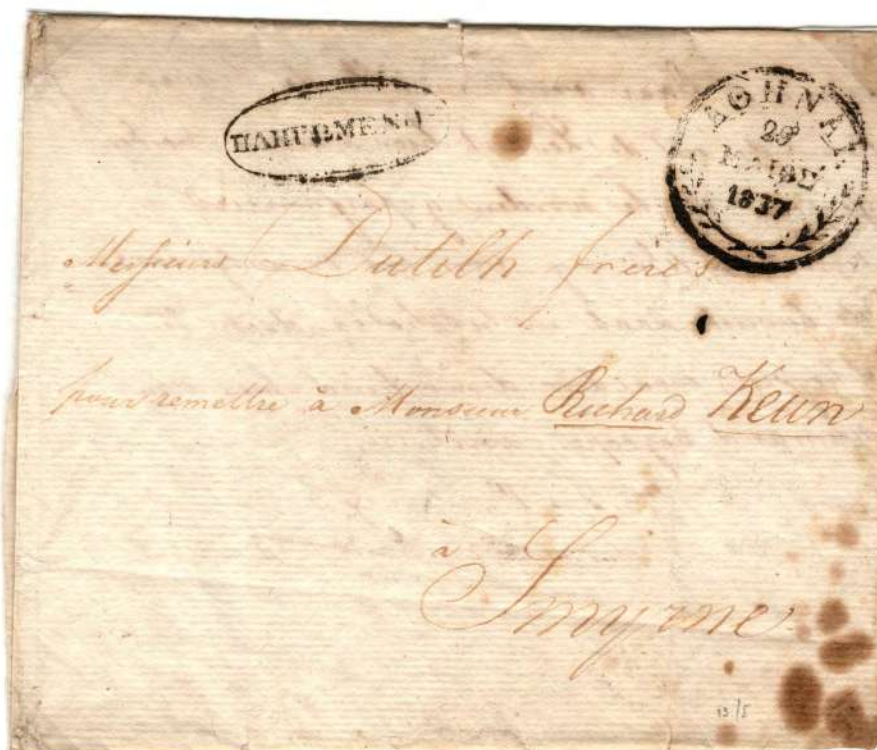 ΑΘΗΝΑΙ
ΜΑΙΟΣ
1837
Messieurs Dutilh frères
pour remettre à Monsieur Richard Keun
à
Smyrne